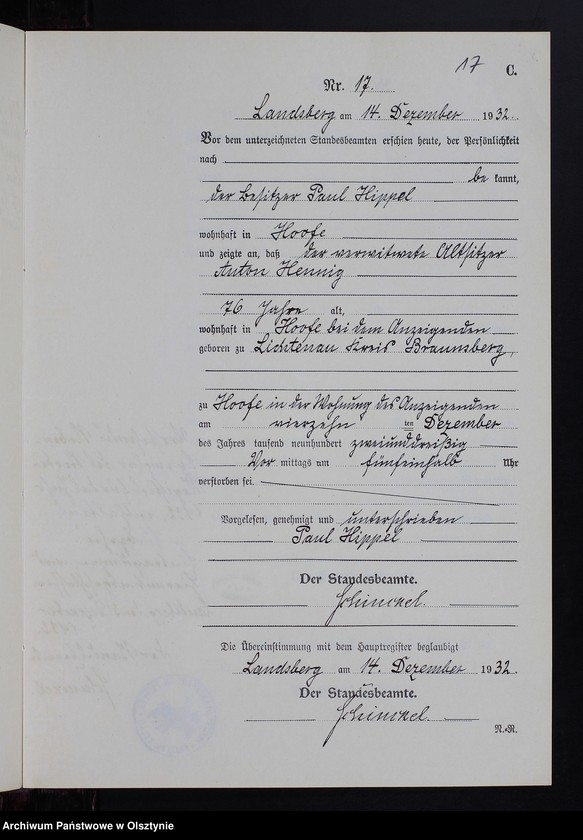 17 C.
Nr. 17.
Landsberg am 14. Dezember 1932.
Vor dem unterzeichneten Standesbeamten erschien heute, der Persönlichkeit
nach
be kannt,
der Besitzer Paul Hippel
wohnhaft in Hoofe
und zeigte an, daß der verwitwete Altsitzer
Anton Hennig
76 Jahre alt,
wohnhaft in Hoofe bei dem Anzeigenden
geboren zu Lichtenau Kreis Braunsberg,
zu Hoofe in der Wohnung des Anzeigenden
am vierzehn ten Dezember
des Jahres tausend neunhundert zweiunddreißig
Vor mittags um fünfeinhalb Uhr
verstorben sei.
Vorgelesen, genehmigt und unterschrieben
Paul Hippel
Der Standesbeamte.
Schinckel.
Die Übereinstimmung mit dem Hauptregister beglaubigt
Landsberg am 14. Dezember 1932.
Der Standesbeamte.
Schinckel.
N.-R.
Archiwum Państwowe w Olsztynie